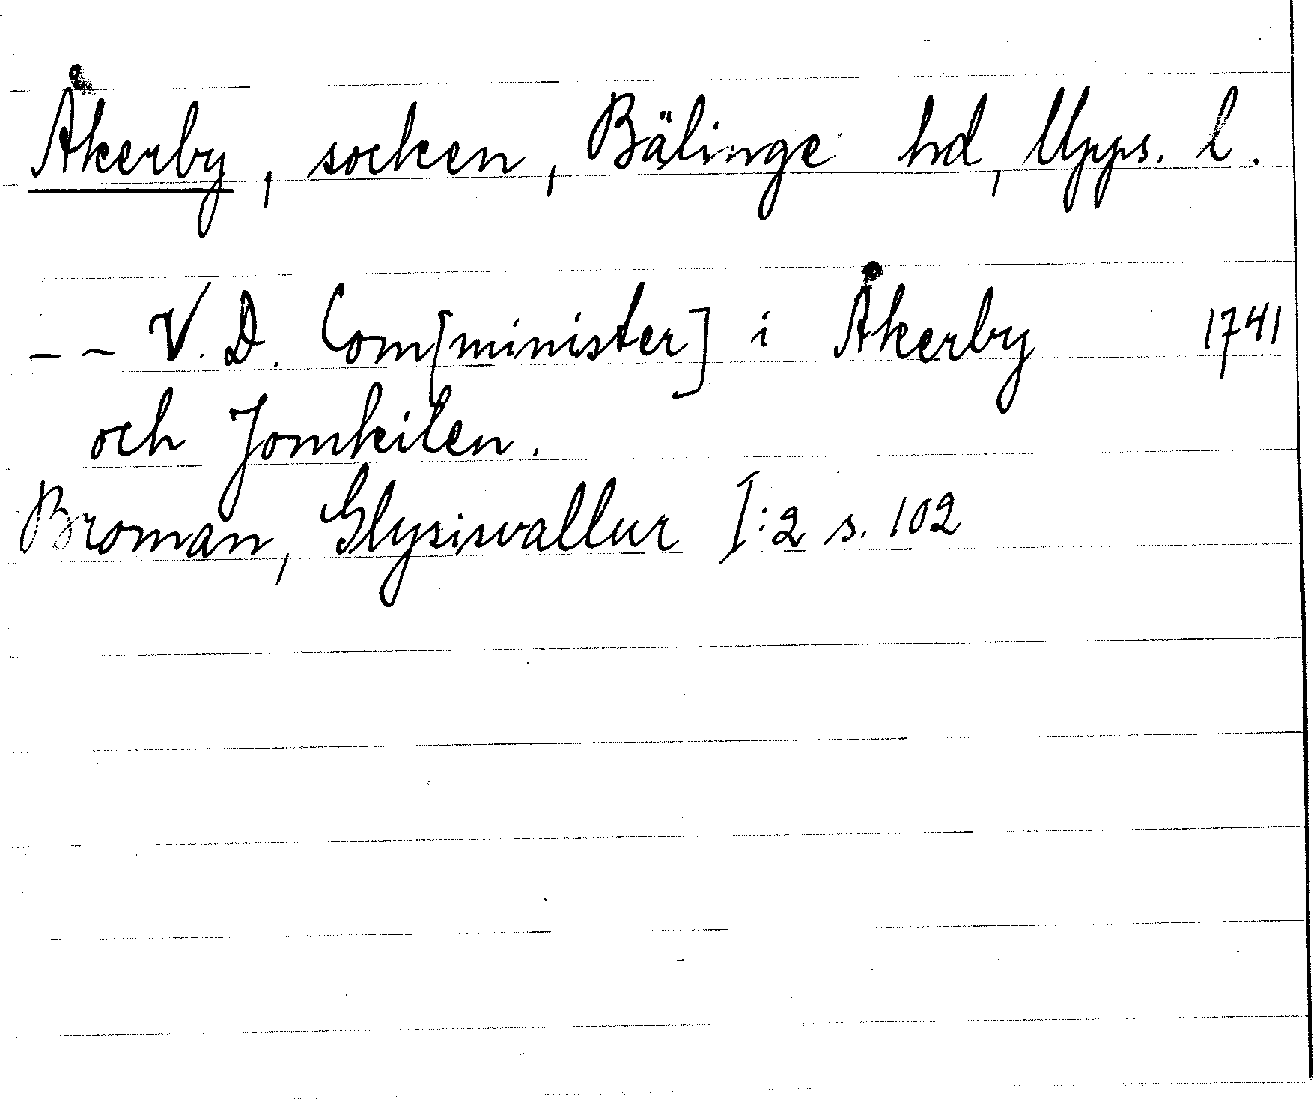 Åkerby, socken, Bälinge hd, Upps. l.
-- V. D. Com[minister] i Åkerby 1741
och Jomkilen.
Broman, Glysisvallur I:2 s. 102